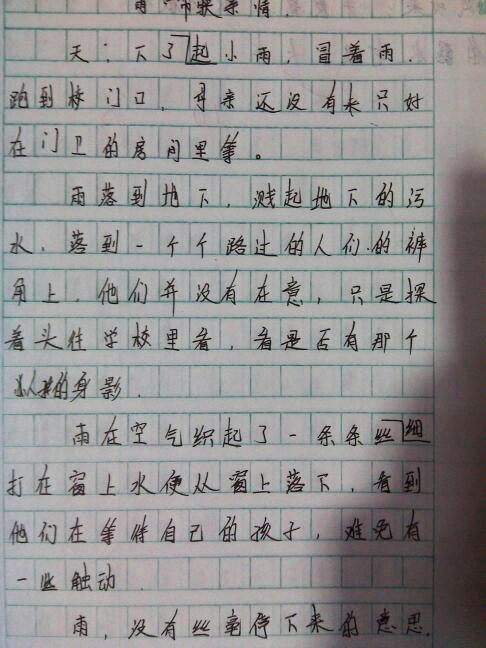 亲情
天,下了起小雨,冒着雨,
跑到校门口,母亲还没有来只好
在门卫的房间里等。
雨落到地下,溅起地下的污
水,落到一个个路过的人们的裤
角上,他们并没有在意,只是探
着头往学校里看,看是否有那个
的身影.
雨在空气织起了一条条丝细
打在窗上水便从窗上落下,看到
他们在等待自己的孩子,难免有
一些触动.
雨,没有丝毫停下来的意思.